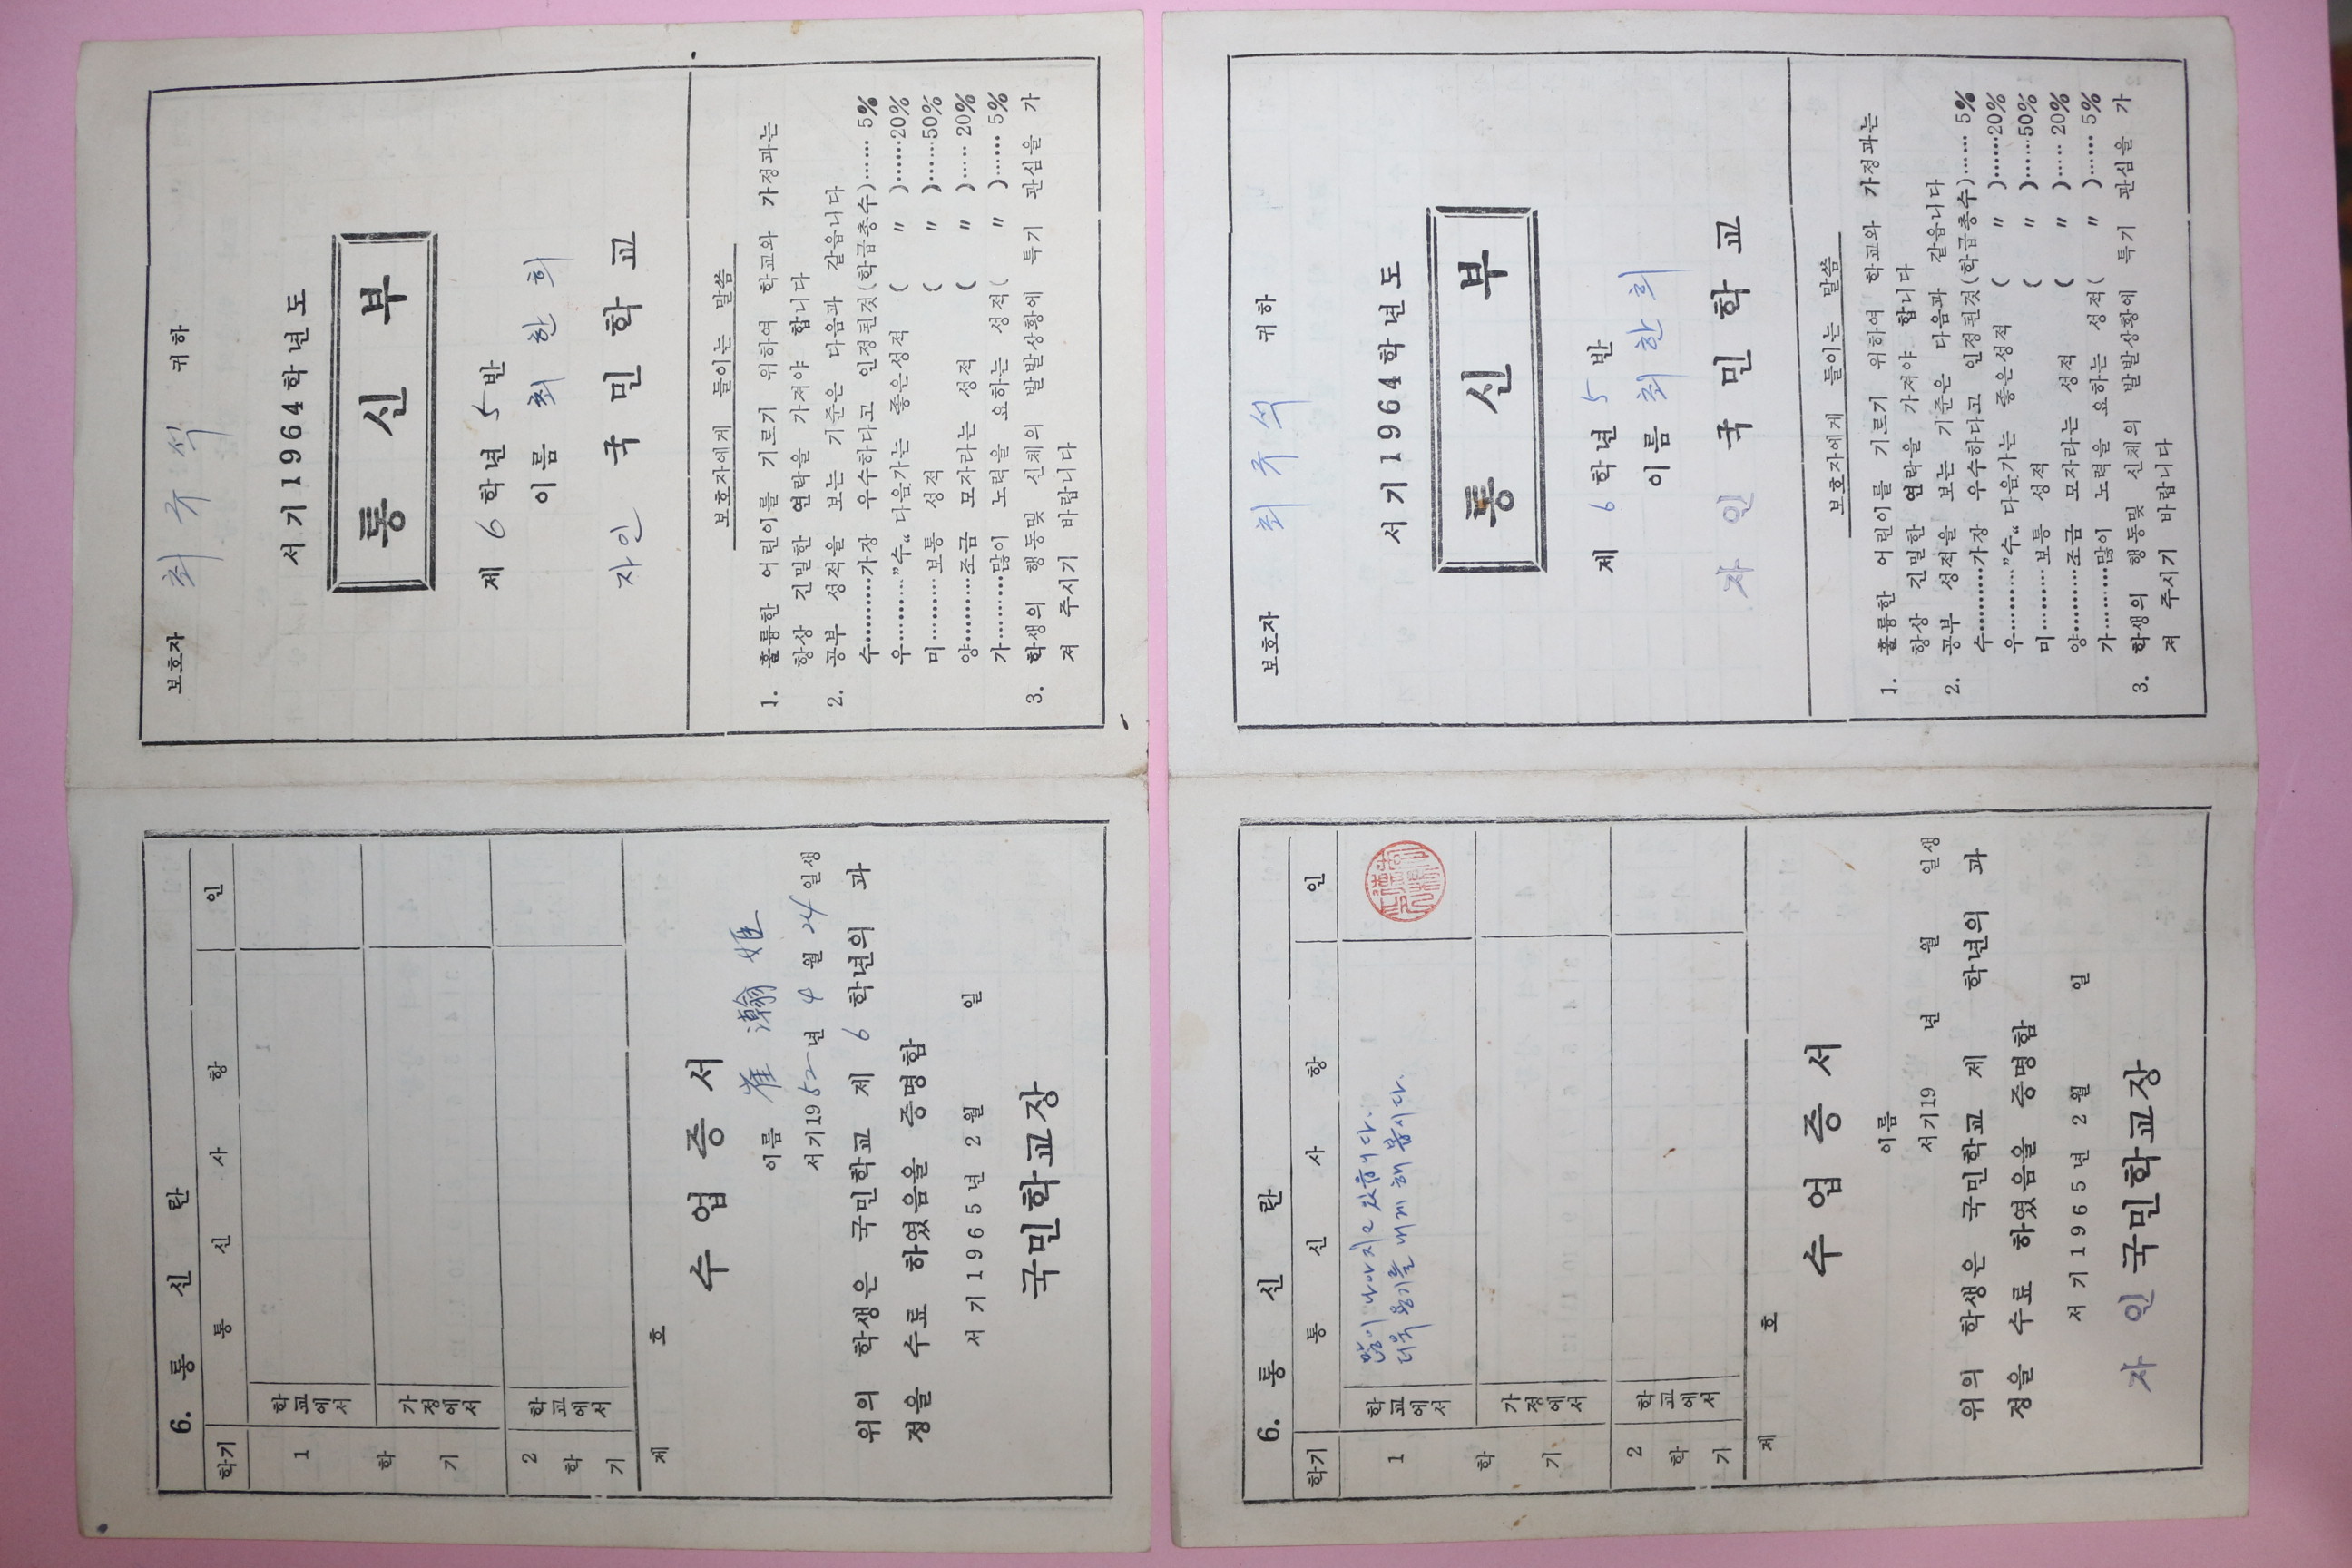 보호자 최규석 귀하
서기1964학년도
통신부
제 6 학년 5 반
이름 최한희
자인 국민학교
보호자에게 들이는 말씀
1. 훌륭한 어린이를 기르기 위하여 학교와 가정과는
항상 긴밀한 연락을 가져야 합니다
2. 공부 성적을 보는 기준은 다음과 같읍니다
수··········가장 우수하다고 인정된것(학급총수)······ 5%
우··········”수“ 다음가는 좋은성적 ( 〃 )······20%
미··········보통 성적 ( 〃 )······50%
양··········조금 모자라는 성적 ( 〃 )····· 20%
가··········많이 노력을 요하는 성적( 〃 )······ 5%
3. 학생의 행동및 신체의 발발상황에 특기 관심을 가
져 주시기 바랍니다
6. 통신란
학기 통신사항 인
1학기 학교에서
가정에서
2학기 학교에서
제 호
수업증서
이름 崔瀚姬
서기1952년 4월 24일생
위의 학생은 국민학교 제 6 학년의 과
정을 수료 하였음을 증명함
서기1965년 2월 일
국민학교장
보호자 최규석 귀하
서기1964학년도
통신부
제 6 학년 5 반
이름 최한희
자인 국민학교
보호자에게 들이는 말씀
1. 훌륭한 어린이를 기르기 위하여 학교와 가정과는
항상 긴밀한 연락을 가져야 합니다
2. 공부 성적을 보는 기준은 다음과 같읍니다
수··········가장 우수하다고 인정된것(학급총수)······ 5%
우··········”수“ 다음가는 좋은성적 ( 〃 )······20%
미··········보통 성적 ( 〃 )······50%
양··········조금 모자라는 성적 ( 〃 )····· 20%
가··········많이 노력을 요하는 성적( 〃 )······ 5%
3. 학생의 행동및 신체의 발발상황에 특기 관심을 가
져 주시기 바랍니다
6. 통신란
학기 통신사항 인
1학기 학교에서 많이 나아지고 있읍니다.
더욱 용기를 내서 해 봅시다.
가정에서
2학기 학교에서
제 호
수업증서
이름
서기19 년 월 일생
위의 학생은 국민학교 제 학년의 과
정을 수료 하였음을 증명함
서기1965년 2월 일
자인 국민학교장